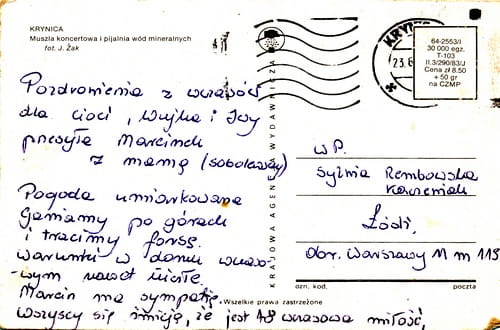 KRYNICA
Muszla koncertowa i pijalnia wód mineralnych
fot. J. Żak
64-2553/I
30 000 egz.
T-103
II.3/290/83/J
Cena zł 8.50
+ 50 gr
na CZMP
KRAJOWA AGENCJA WYDAWNICZA
Pozdrowienia z wczasów
dla cioci, wujka i Ivy
przesyła Marcinek
z mamą (sobolewscy)
Pogoda umiarkowana
Ganiamy po górach
i tracimy forsę.
Warunki w domu wczaso-
wym nawet niezłe
Marcin ma sympatię.
Wszyscy się śmieją, że jest to wczasowa miłość
W.P.
Sylwia Rembowska
Łódź,
ozn. kod.
poczta
Wszelkie prawa zastrzeżone